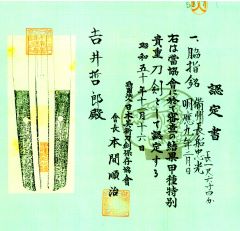 認定書
一、脇指 銘 備州長船忠光
明應九年二月日
長一尺六寸四分
右は當協會に於て審査の結果甲種特別
貴重刀剣として認定する
昭和五十年十月十六日
財團法人日本美術刀剣保存協會
會長 本間順治
吉井哲郎殿